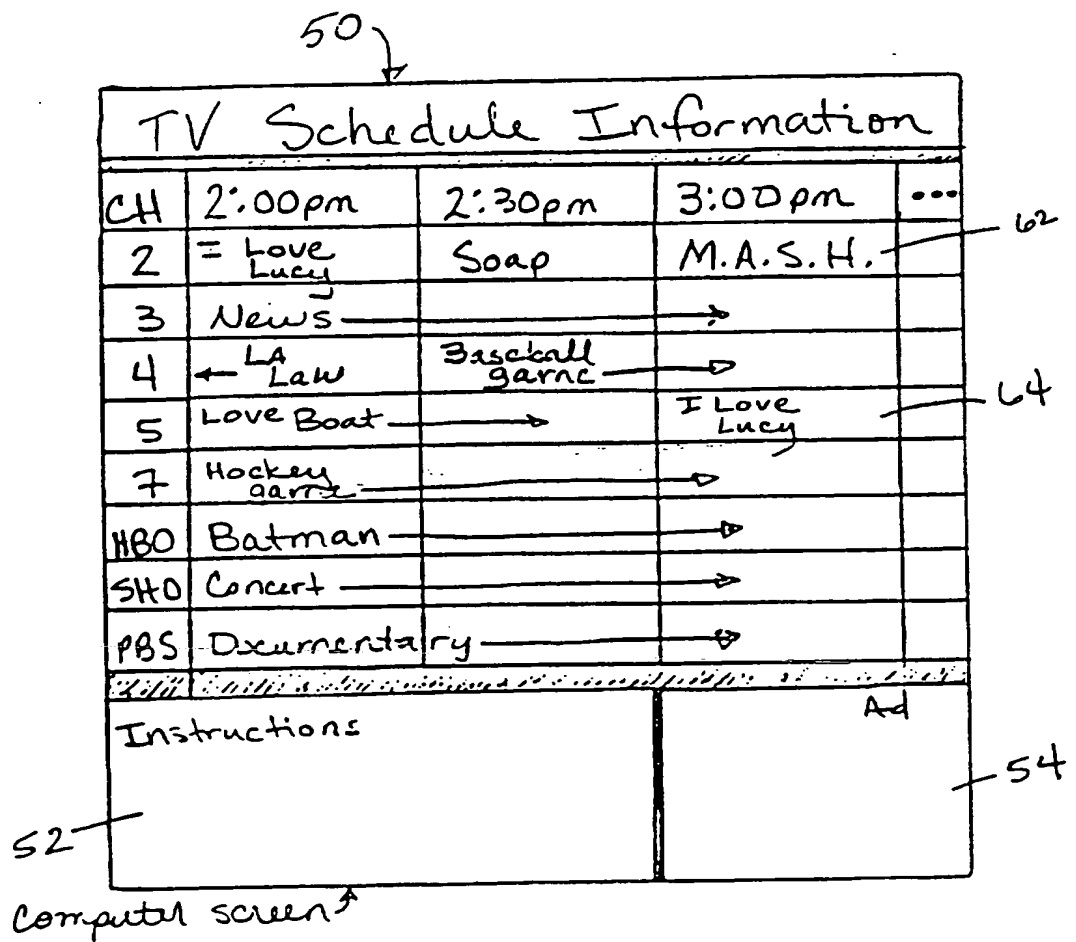 50
TV Schedule Information
CH 2:00pm 2:30pm 3:00pm ...
62
2 I Love Lucy Soap M.A.S.H.
3 News
4 LA Law Baseball game
5 Love Boat I Love Lucy
64
7 Hockey game
HBO Batman
SHO Concert
PBS Documentary
Instructions
Ad
54
52
Computer screen